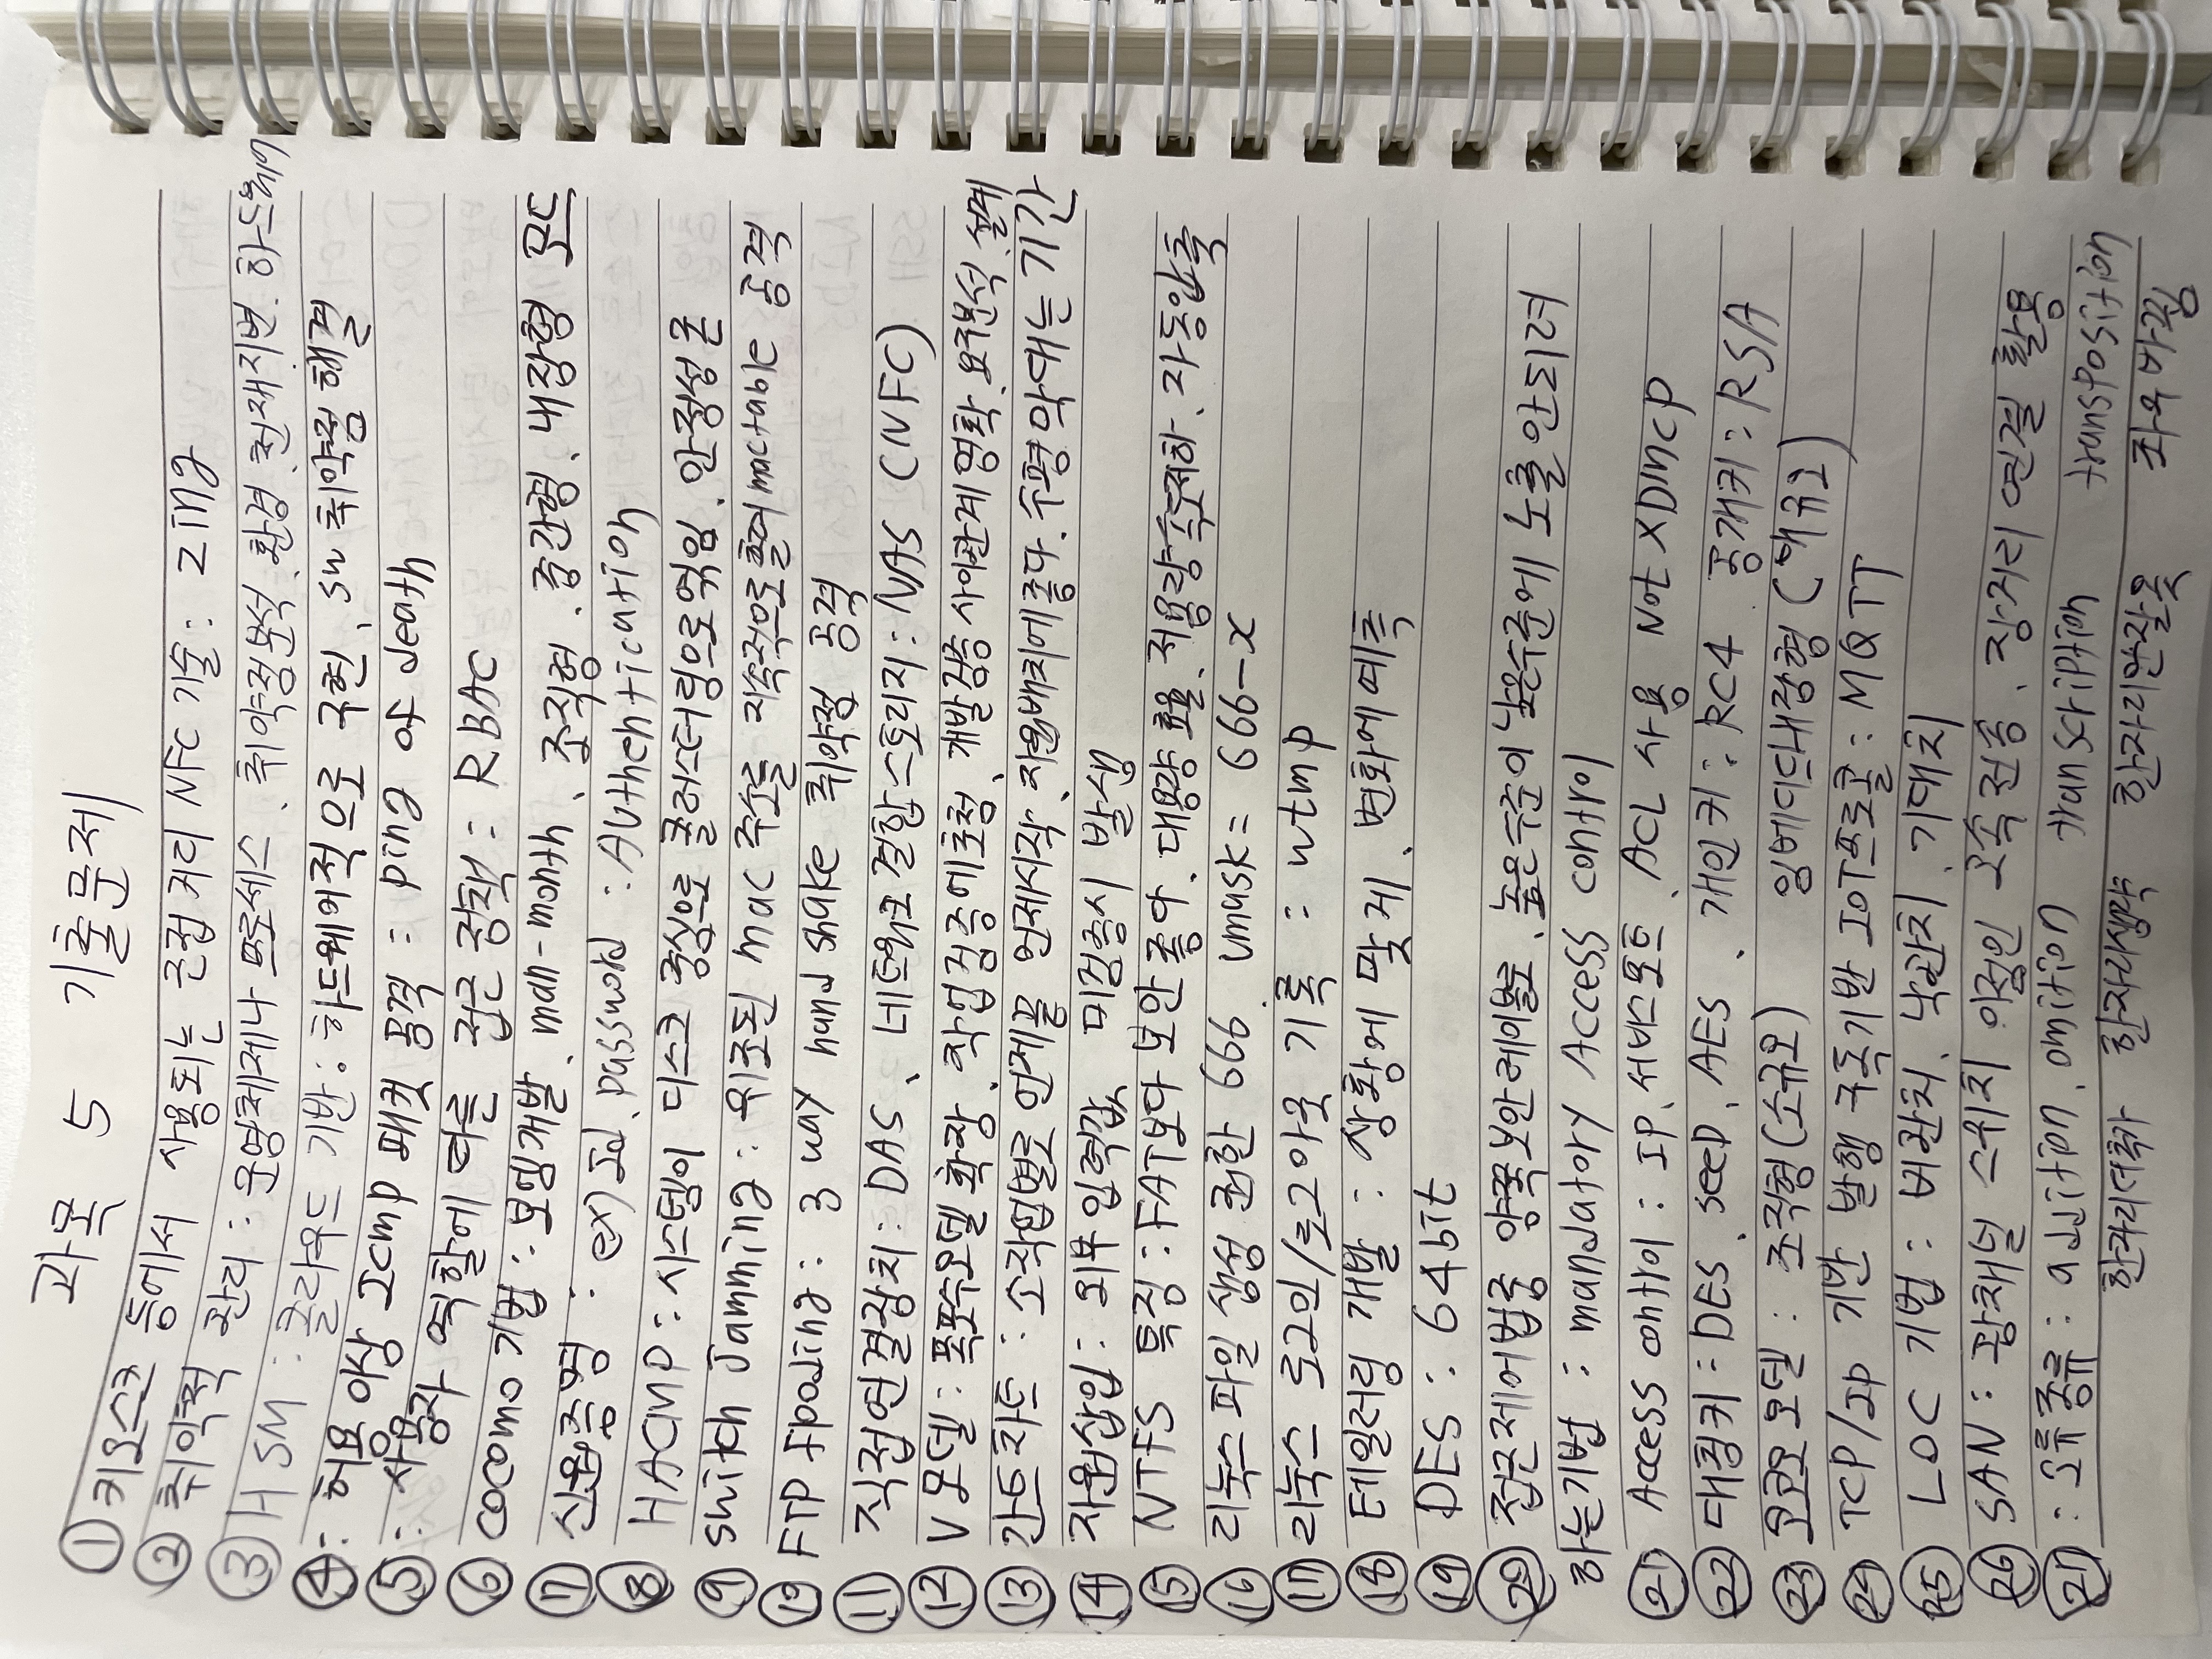 과목 5 기출문제
① 키오스크 등에서 사용되는 근접거리 NFC 기술 : Zing
② 취약점 관리 : 운영체제나 프로세스 、취약점분석、환경、천재지변、하드웨어
③ HSM : 클라우드 기반 : 하드웨어적으로 구현、SW 취약점 해결
④ : 허용 이상 ICMP 패킷 공격 : ping of death
⑤ : 사용자 역할에 따른 접근 정책 : RBAC
⑥ cocomo 기법 : 보헴개발、man-month、조직형、중간형、내장형 모드
⑦ 신원증명 : ex) Id、password : Authentication
⑧ HACMP : 시스템이 디스크 중심으로 클러스터링으로 묶임、안정성 굳
⑨ switch Jamming : 위조된 mac 주소를 지속적으로 흘려 mactable 공격
⑩ FTP flooding : 3 way hand shake 취약점 공격
⑪ 직접연결장치 : DAS、네트워크 결합 스토리지 : NAS (NFC)
⑫ V 모델 : 폭포수모델 확장、작업검증에초점、개발검증사이관계명확、요구분석、설계
⑬ 간트차트 : 소작업별로 언제끝 언제시작、자원배치에좋다、수평막대는 기간
⑭ 자원삽입 : 외부 입력값 미검증시 발생
⑮ NTFS 특징 : FAT보다 보안 좋아、대용량 효율、저용량속도저하、자동압축
⑯ 리눅스 파일 생성 권한 666、umask = 666-x
⑰ 리눅스 로그인/로그아웃 기록 : wtmp
⑱ 테일러링 개발 : 상황에 맞게、변화에 예측
⑲ DES : 64bit
⑳ 접근제어법중 양쪽보안레이블로、높은수준이 낮은수준에 노출안되려
하는기법 : mandatory Access control
㉑ Access control : IP、서비스포트、ACL 사용 Not XDMCP
㉒ 대칭키 : DES、seed、AES、개인키 : RC4 공개키 : RSA
㉓ 코코모 모델 : 조직형 (소규모) 임베디드내장형 (대규모)
㉔ TCP/IP 기반 발행 구독기반 IOT프로콜 : MQTT
㉕ LOC 기법 : 비관치、낙관치、기대치
㉖ SAN : 광채널 스위치 이점인 고속전송、장거리 연결 활용
㉗ : 오류종류 : addition、omition transcription transposition
한자리더추가 한자리생략 한자리잘못 좌우바뀜